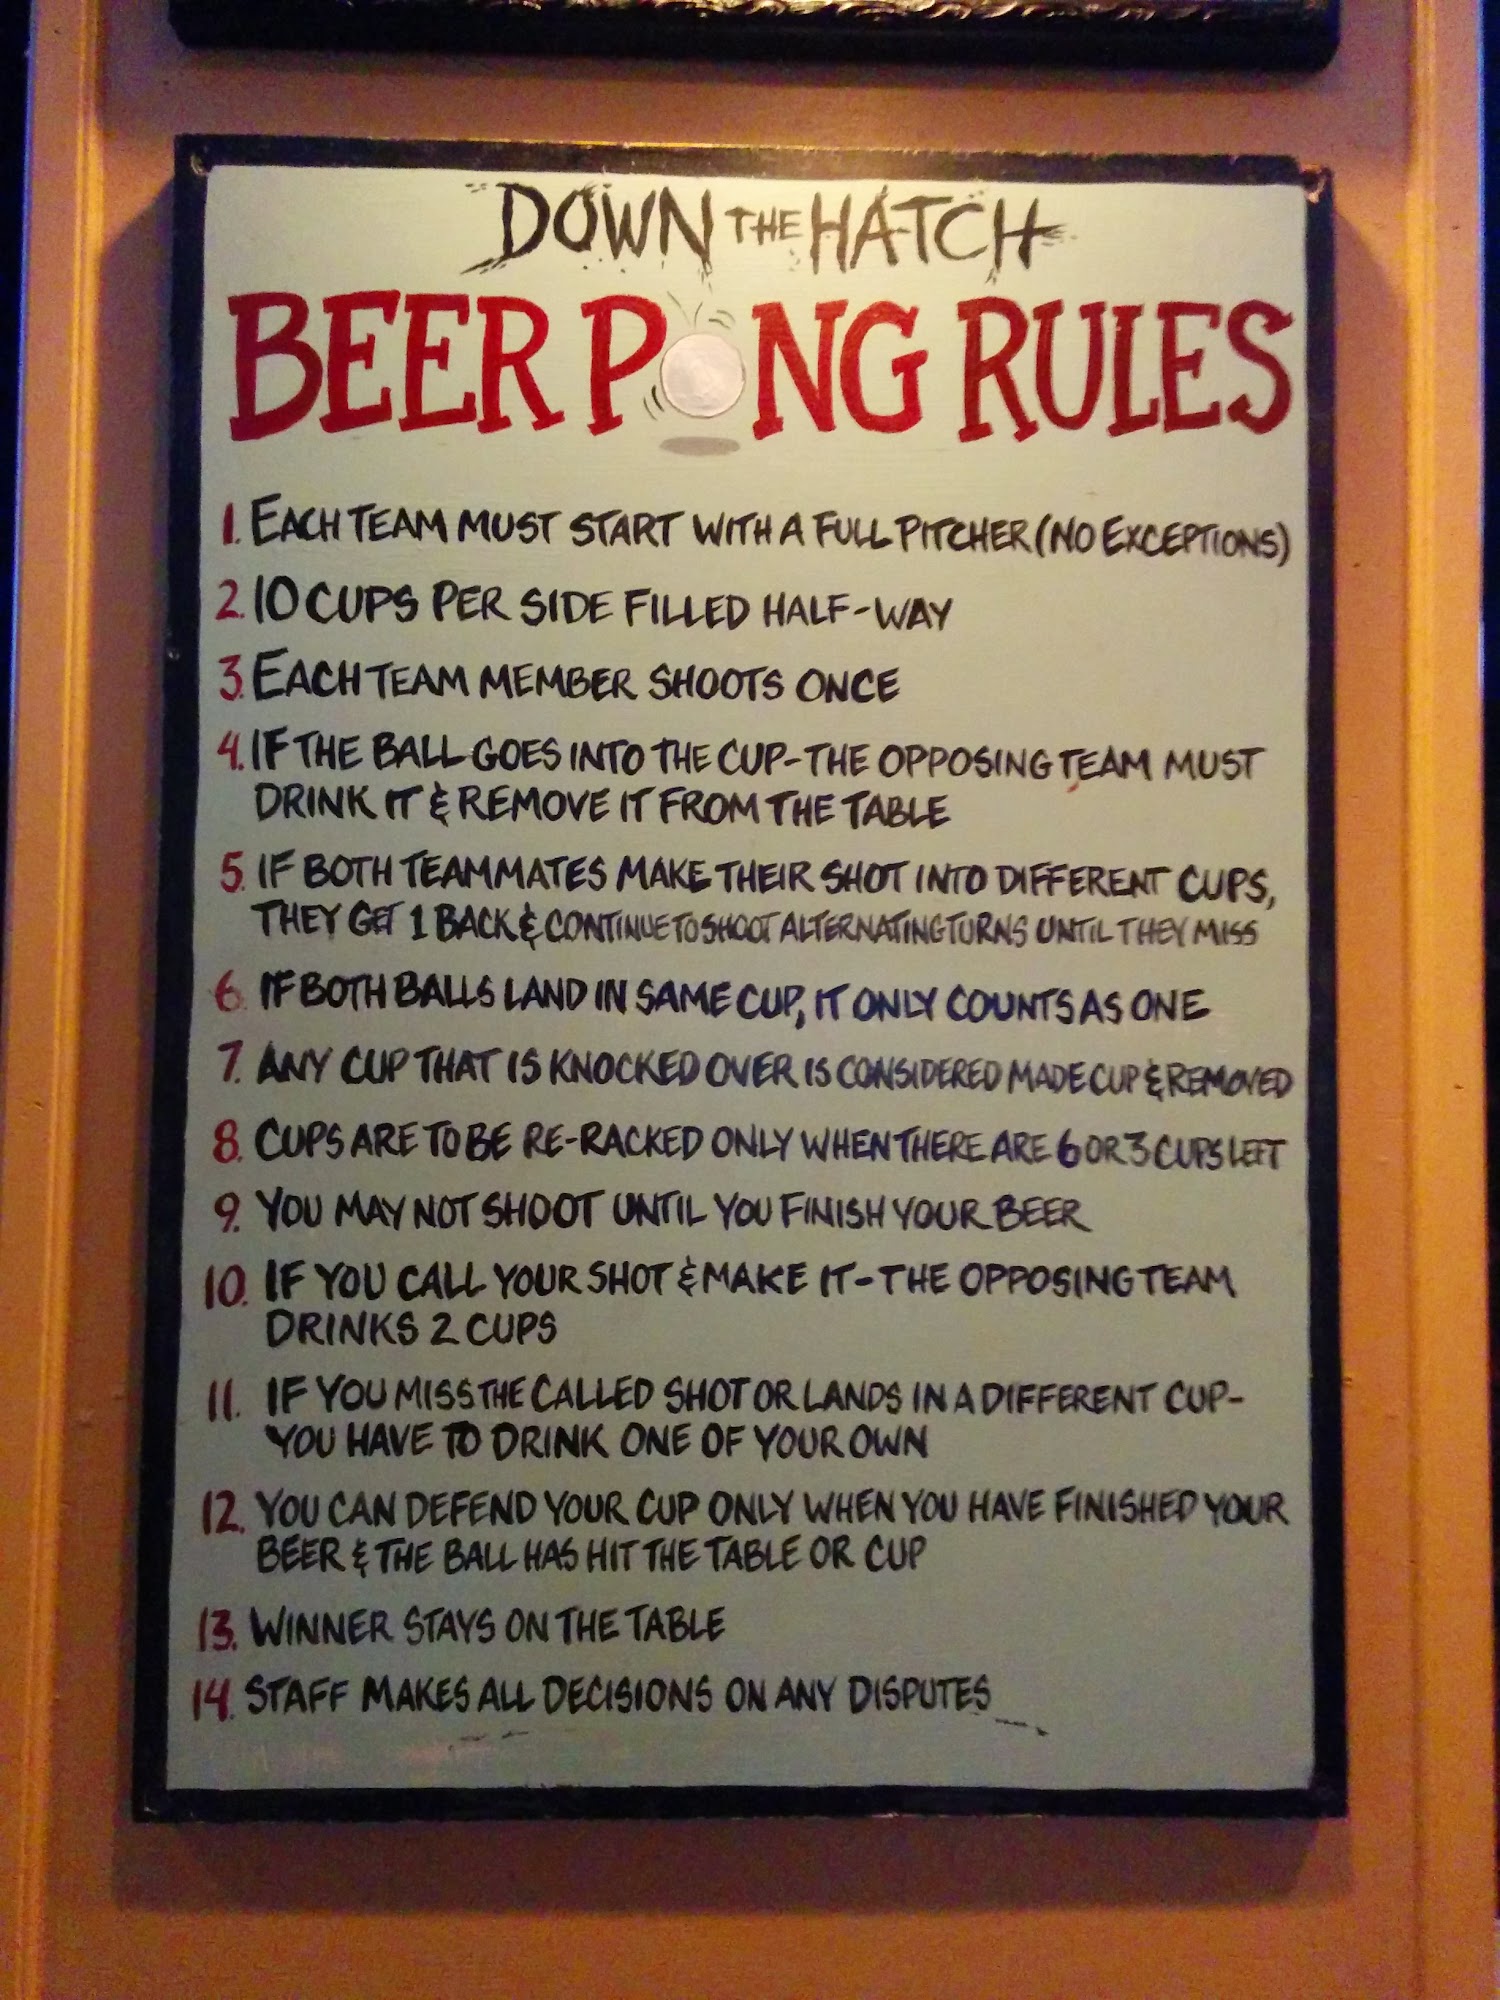 DOWN THE HATCH
BEER PONG RULES
1. EACH TEAM MUST START WITH A FULL PITCHER (NO EXCEPTIONS)
2. 10 CUPS PER SIDE FILLED HALF-WAY
3. EACH TEAM MEMBER SHOOTS ONCE
4. IF THE BALL GOES INTO THE CUP-THE OPPOSING TEAM MUST
DRINK IT & REMOVE IT FROM THE TABLE
5. IF BOTH TEAMMATES MAKE THEIR SHOT INTO DIFFERENT CUPS,
THEY GET 1 BACK & CONTINUE TO SHOOT ALTERNATING TURNS UNTIL THEY MISS
6. IF BOTH BALLS LAND IN SAME CUP, IT ONLY COUNTS AS ONE
7. ANY CUP THAT IS KNOCKED OVER IS CONSIDERED MADE CUP & REMOVED
8. CUPS ARE TO BE RE-RACKED ONLY WHEN THERE ARE 6 OR 3 CUPS LEFT
9. YOU MAY NOT SHOOT UNTIL YOU FINISH YOUR BEER
10. IF YOU CALL YOUR SHOT & MAKE IT-THE OPPOSING TEAM
DRINKS 2 CUPS
11. IF YOU MISS THE CALLED SHOT OR LANDS IN A DIFFERENT CUP-
YOU HAVE TO DRINK ONE OF YOUR OWN
12. YOU CAN DEFEND YOUR CUP ONLY WHEN YOU HAVE FINISHED YOUR
BEER & THE BALL HAS HIT THE TABLE OR CUP
13. WINNER STAYS ON THE TABLE
14. STAFF MAKES ALL DECISIONS ON ANY DISPUTES